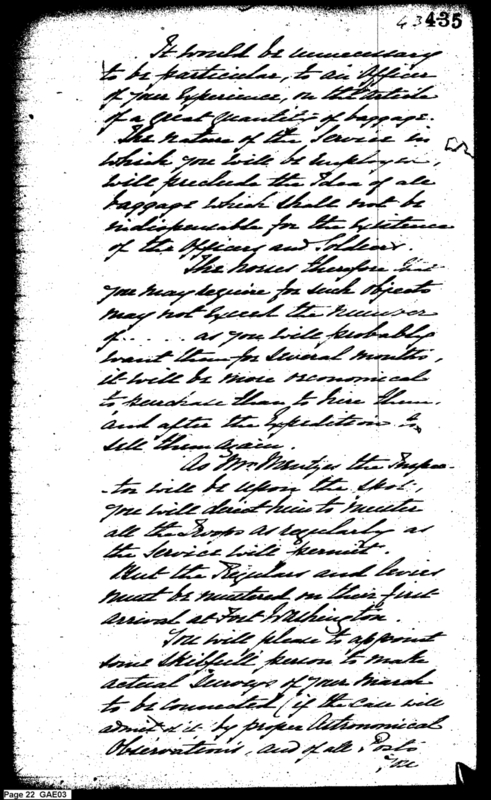 43 435
It would be unnecessary
to be particular, to an Officer
of your Experience, on the Article
of a great quantity of baggage.
The nature of the Service in
which you will be employed,
will preclude the Idea of all
baggage which shall not be
indispensable for the existence
of the Officers and Soldiers.
The horses therefore that
you may require for such objects
may not exceed the number
of . . . . . as you will probably
want them for several months,
it will be more oeconomical
to purchase than to hire them.
and after the Expedition to
sell them again.
As Mr. the Inspec-
-tor will be upon the spot,
you will direct him to muster
all the Troops as regularly as
the Service will permit.
But the Regulars and levies
must be mustered on their first
arrival at Fort Washington.
You will please to appoint
some skilfull person to make
actual Surveys of your March
to be connected (if the case will
admit of it by proper Astronomical
Observations, and of all Posts
you
Page 22 GAE03